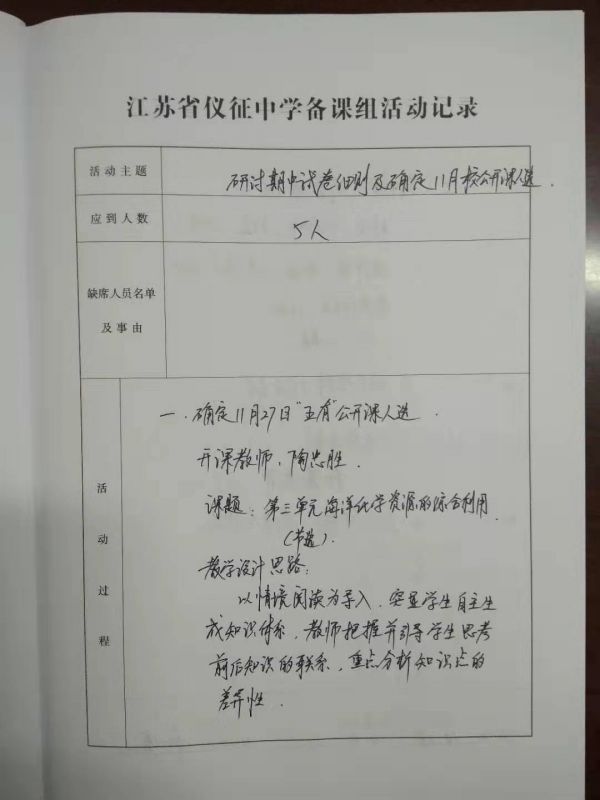 江苏省仪征中学备课组活动记录
活动主题
研讨期中试卷细则及确定11月校公开课人选.
应到人数
5人
缺席人员名单
及事由
活动过程
一.确定11月27日"五有"公开课人选.
开课教师:陶忠胜.
课题:第三单元海洋化学资源的综合利用
(节选).
教学设计思路:
以情境阅读为导入,突显学生自主生
成知识体系,教师把握并引导学生思考
前后知识的联系,重点分析知识点的
差异性.